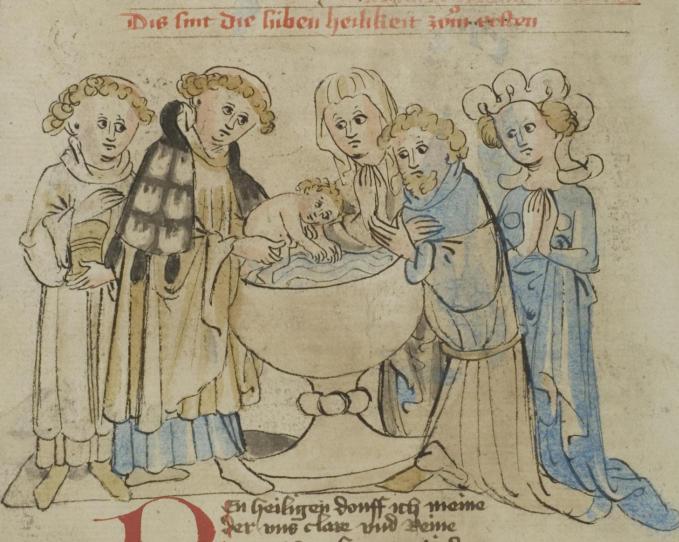 Dis sint die siben heilikeit zöm ersten
DEn heiligen douff ich meine
Der vns clare vnd Reine